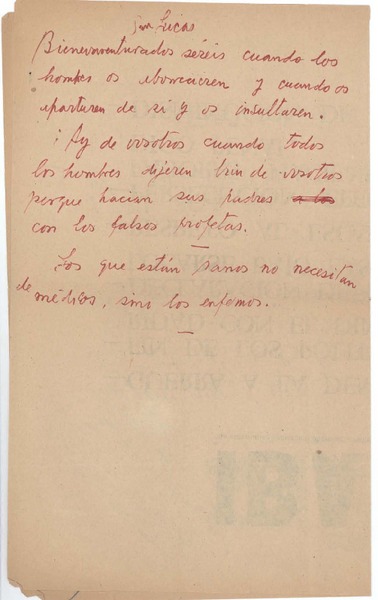 San Lucas
Bienaventurados seréis cuando los
hombres os aborrecieren y cuando os
aparturen de sí y os insultaren.
¡Ay de vosotros cuando todos
los hombres dijeren bien de vosotros
porque hacian sus padres a los
con los falsos profetas.
Los que están sanos no necesitan
de médicos, sino los enfermos.